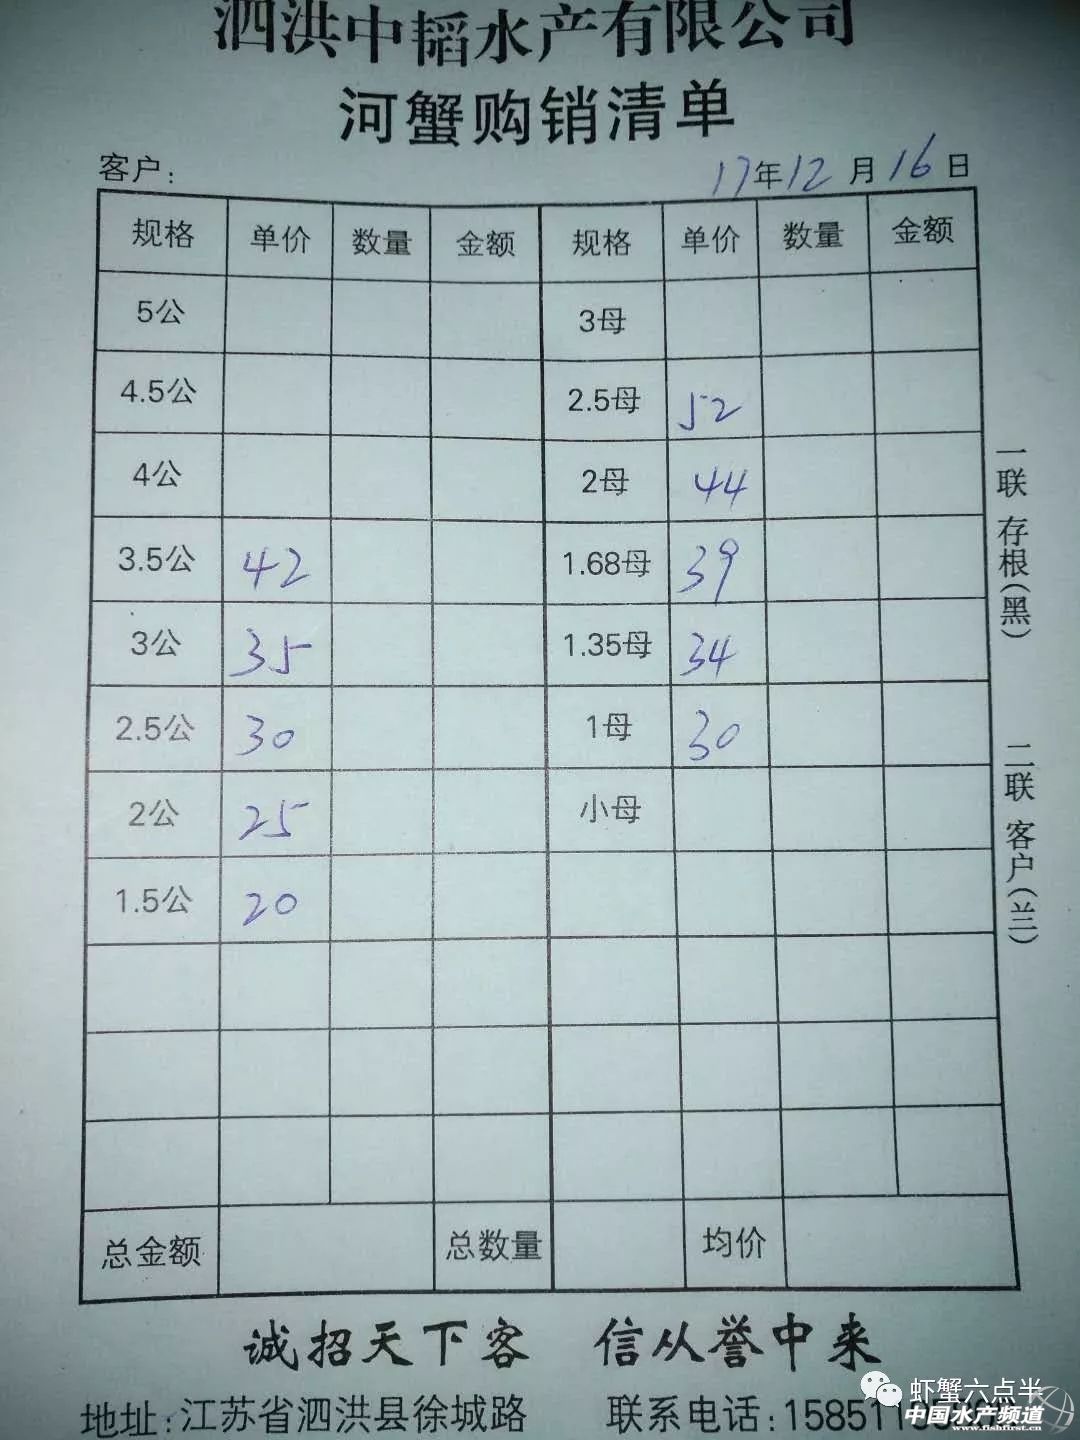 泗洪中韬水产有限公司
河蟹购销清单
客户: 17年12月16日
规格 单价 数量 金额 规格 单价 数量 金额
5公 3母
4.5公 2.5母 52
4公 2母 44
3.5公 42 1.68母 39
3公 35 1.35母 34
2.5公 30 1母 30
2公 25 小母
1.5公 20
总金额 总数量 均价
一联 存根(黑) 二联 客户(兰)
诚招天下客 信从誉中来
地址:江苏省泗洪县徐城路 联系电话:158511
虾蟹六点半
中国水产频道
www.fishfirst.cn